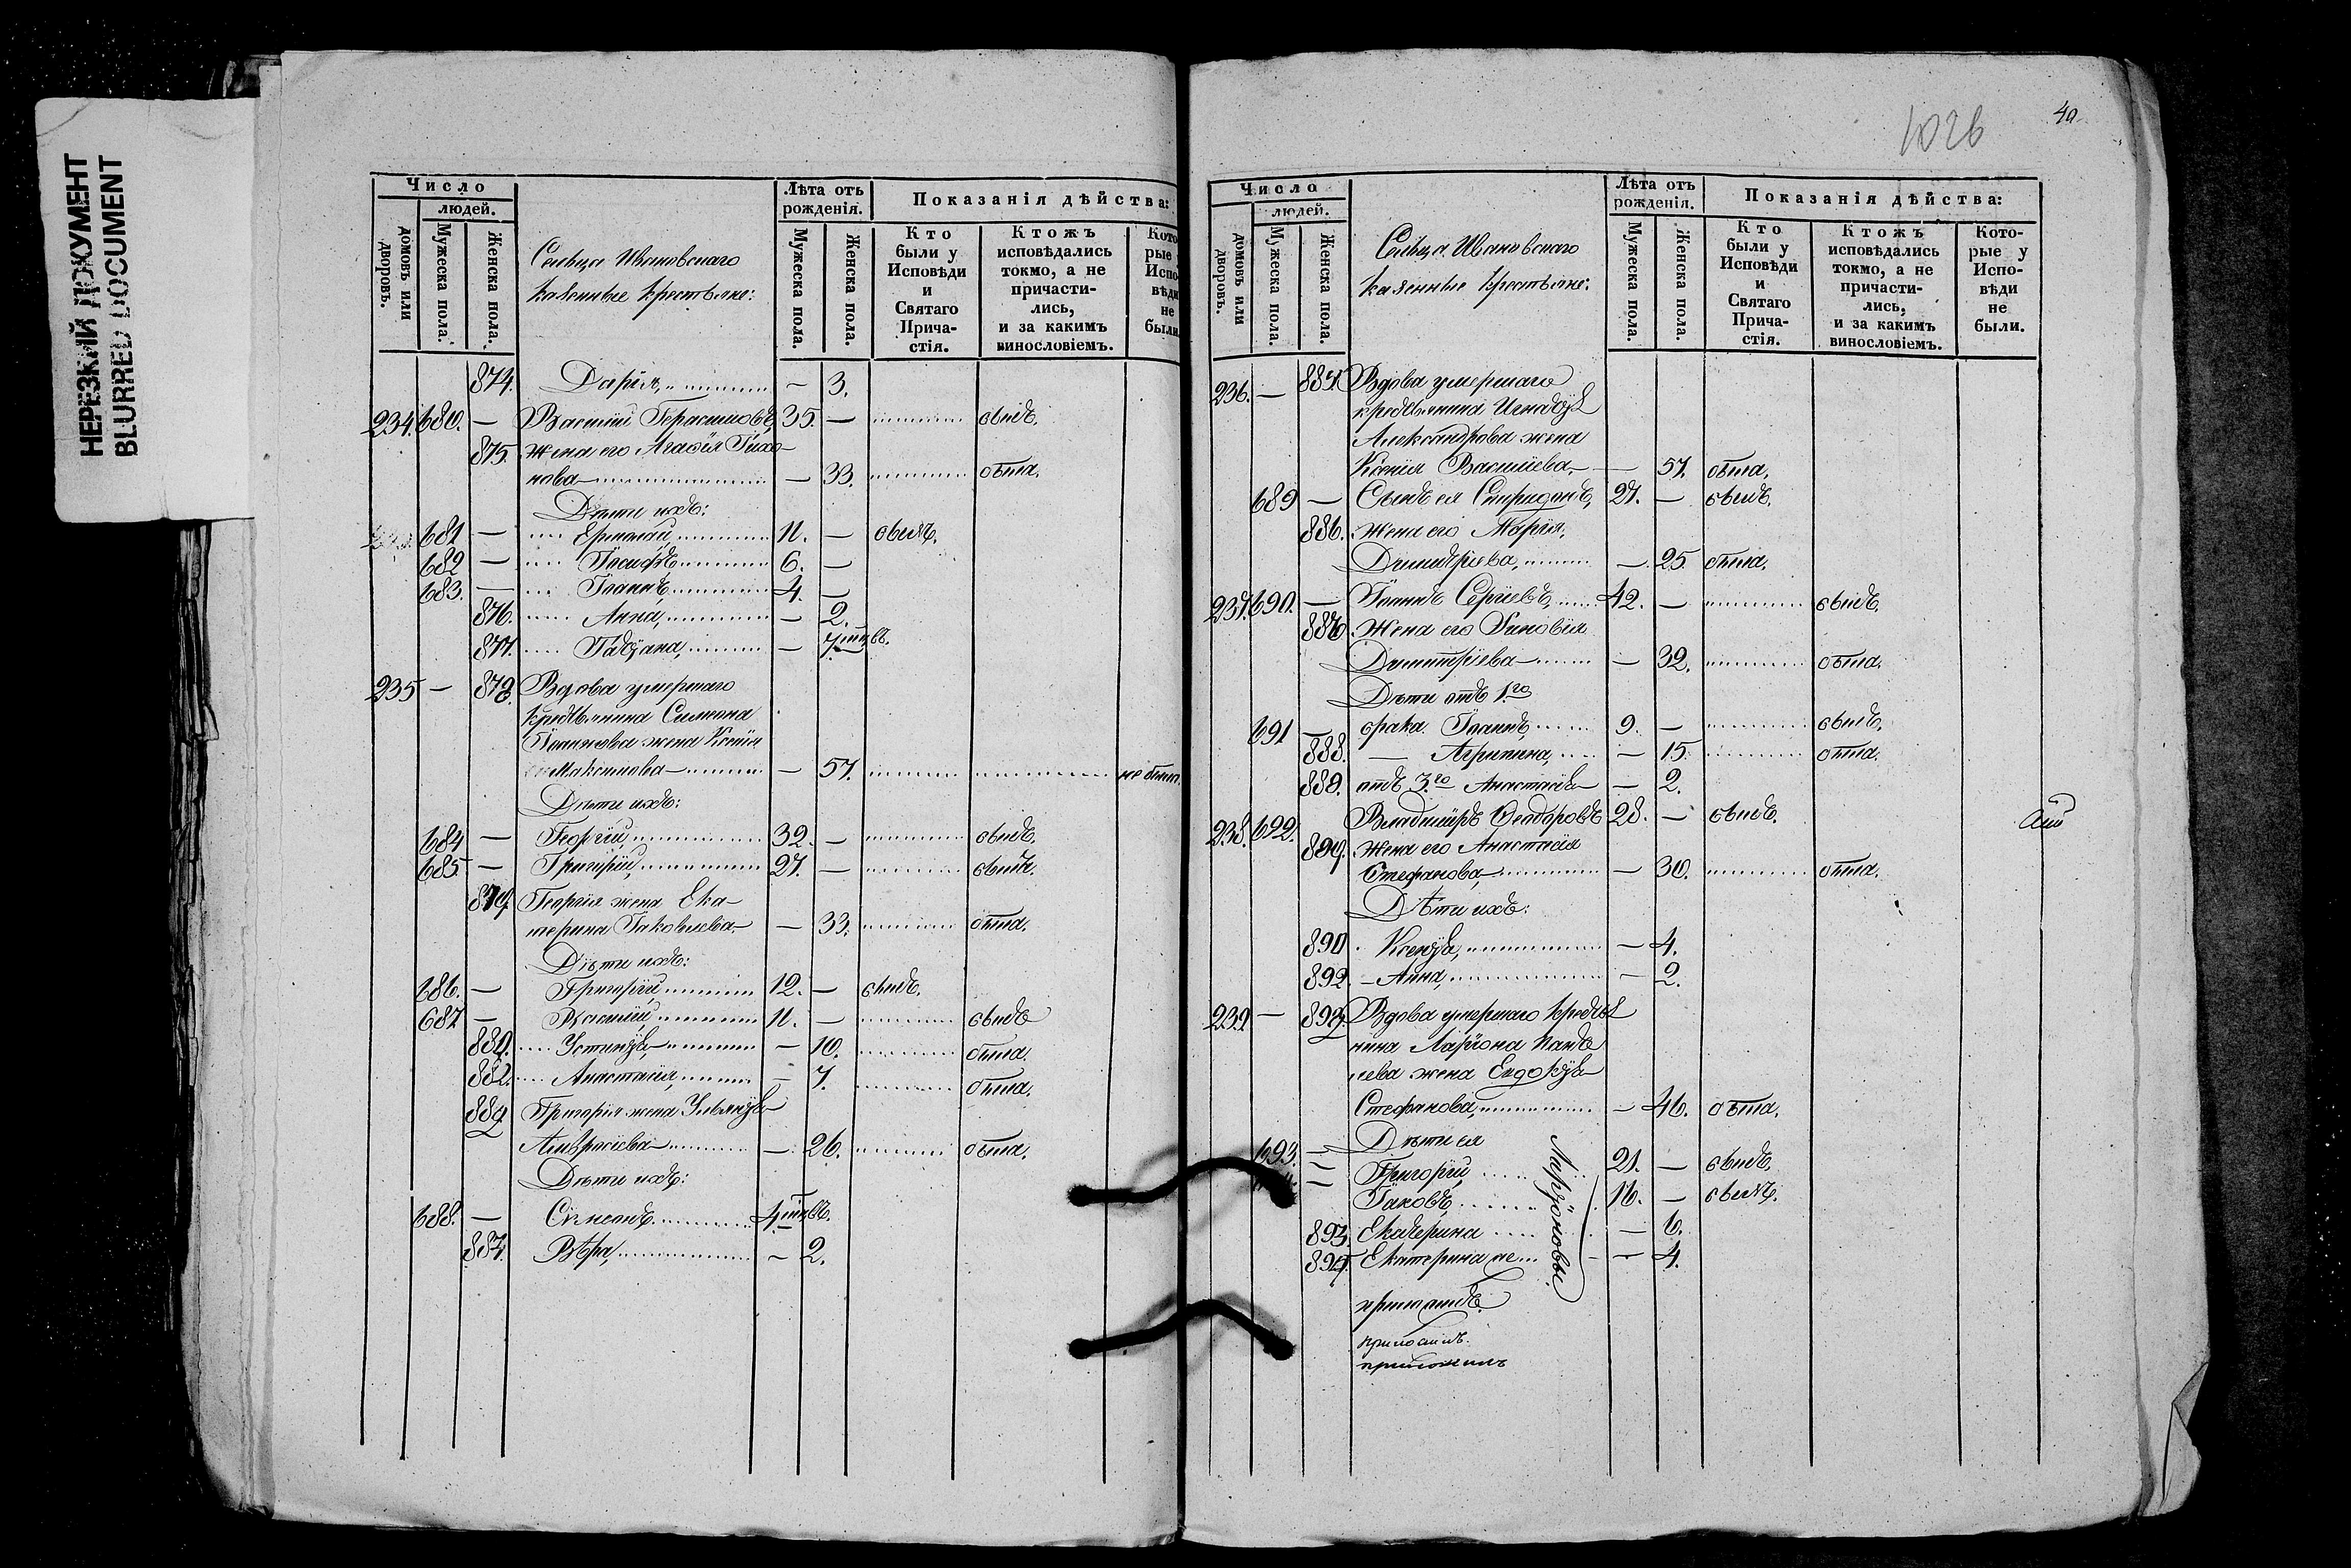 НЕРЕЗКИЙ ДОКУМЕНТ
BLURRED DOCUMENT
Число
людей.
домовъ или дворовъ.
Мужеска пола.
Женска пола.
Сельца Ивановскаго
казенные крестьяне:
Лѣта отъ
рожденія.
Мужеска пола.
Женска пола.
Показанія дѣйства:
Кто
были у
Исповѣди
и
Святаго
Прича-
стія.
Ктожъ
исповѣдались
токмо, а не
причасти-
лись,
и за какимъ
винословіемъ.
Кото
рые у
Испо
вѣди
не
были.
874. Дарія, — 3.
234. 680. — Василій Герасимовъ, 35. — былъ.
875. жена его Агафія Тихо-
нова — 33. была.
Дѣти ихъ:
681 — Ермолай 11. — былъ.
682 — Іосифъ 6. —
683. — Іоаннъ, 4. —
876. Анна, — 2.
877. Татіана, — 7 мцвъ.
235 — 878. Вдова умершаго
крестьянина Симеона
Іоаннова жена Ксенія
Максимова — 57. не была.
Дѣти ихъ:
684 — Георгій, 32. — былъ.
685 — Григорій, 27. — былъ.
879. Георгія жена Ека-
терина Іаковлева — 33. была.
Дѣти ихъ:
686. — Григорій, 12. — былъ.
687 — Василій, 11. — былъ
880. Устинія, — 10. была.
882. Анастасія, — 7. была.
889 Григорія жена Ульянія
Амвросіева — 26. была.
Дѣти ихъ:
688. — Сѵмеонъ 4 мцвъ.
884. Вѣра, — 2.
1026
40
Число
людей.
домовъ или дворовъ.
Мужеска пола.
Женска пола.
Сельца Ивановскаго
казенные крестьяне:
Лѣта отъ
рожденія.
Мужеска пола.
Женска пола.
Показанія дѣйства:
Кто
были у
Исповѣди
и
Святаго
Прича-
стія.
Ктожъ
исповѣдались
токмо, а не
причасти-
лись,
и за какимъ
винословіемъ.
Кото-
рые у
Испо-
вѣди
не
были.
236. — 885. Вдова умершаго
крестьянина Игнатія
Александрова жена
Ксенія Василіева — 57. была.
689 — Сынъ ея Спиридонъ, 27. — былъ.
886. Жена его Марія,
Димитріева, — 25 была.
237. 690. — Іоаннъ Сергіевъ, 42. — былъ.
886. Жена его Зиновія
Димитріева — 32. была.
Дѣти отъ 1го
691 — брака Іоаннъ 9. — былъ.
888. — Агрипина, — 15. была.
889. отъ 3го Анастасія — 2.
238. 692. Владиміръ Ѳеодоровъ 28. — былъ.
889. жена его Анастасія
Стефанова, — 30. была.
Дѣти ихъ:
890. Ксенія, — 4.
892. — Анна, — 2.
239 — 893. Вдова умершаго крестья
нина Ларіона Панте
леева жена Евдокія
Стефанова, — 46. была.
Дѣти ея
693. — Григорій, 21. — былъ.
— Іаковъ, 16. — былъ.
893. Екатерина — 6.
894. Екатерина же — 4.
Ларіоновы